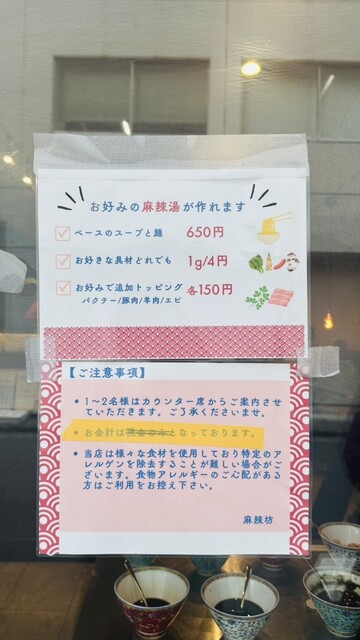 お好みの麻辣湯が作れます
ベースのスープと麺 650円
お好きな具材どれでも 1g/4円
お好みで追加トッピング 各150円
パクチー/豚肉/羊肉/エビ
【ご注意事項】
• 1~2名様はカウンター席からご案内させ
ていただきます。ご了承くださいませ。
• お会計は現金のみとなっております。
• 当店は様々な食材を使用しており特定のア
レルゲンを除去することが難しい場合がご
ざいます。食物アレルギーのご心配がある
方はご利用をお控え下さい。
麻辣坊